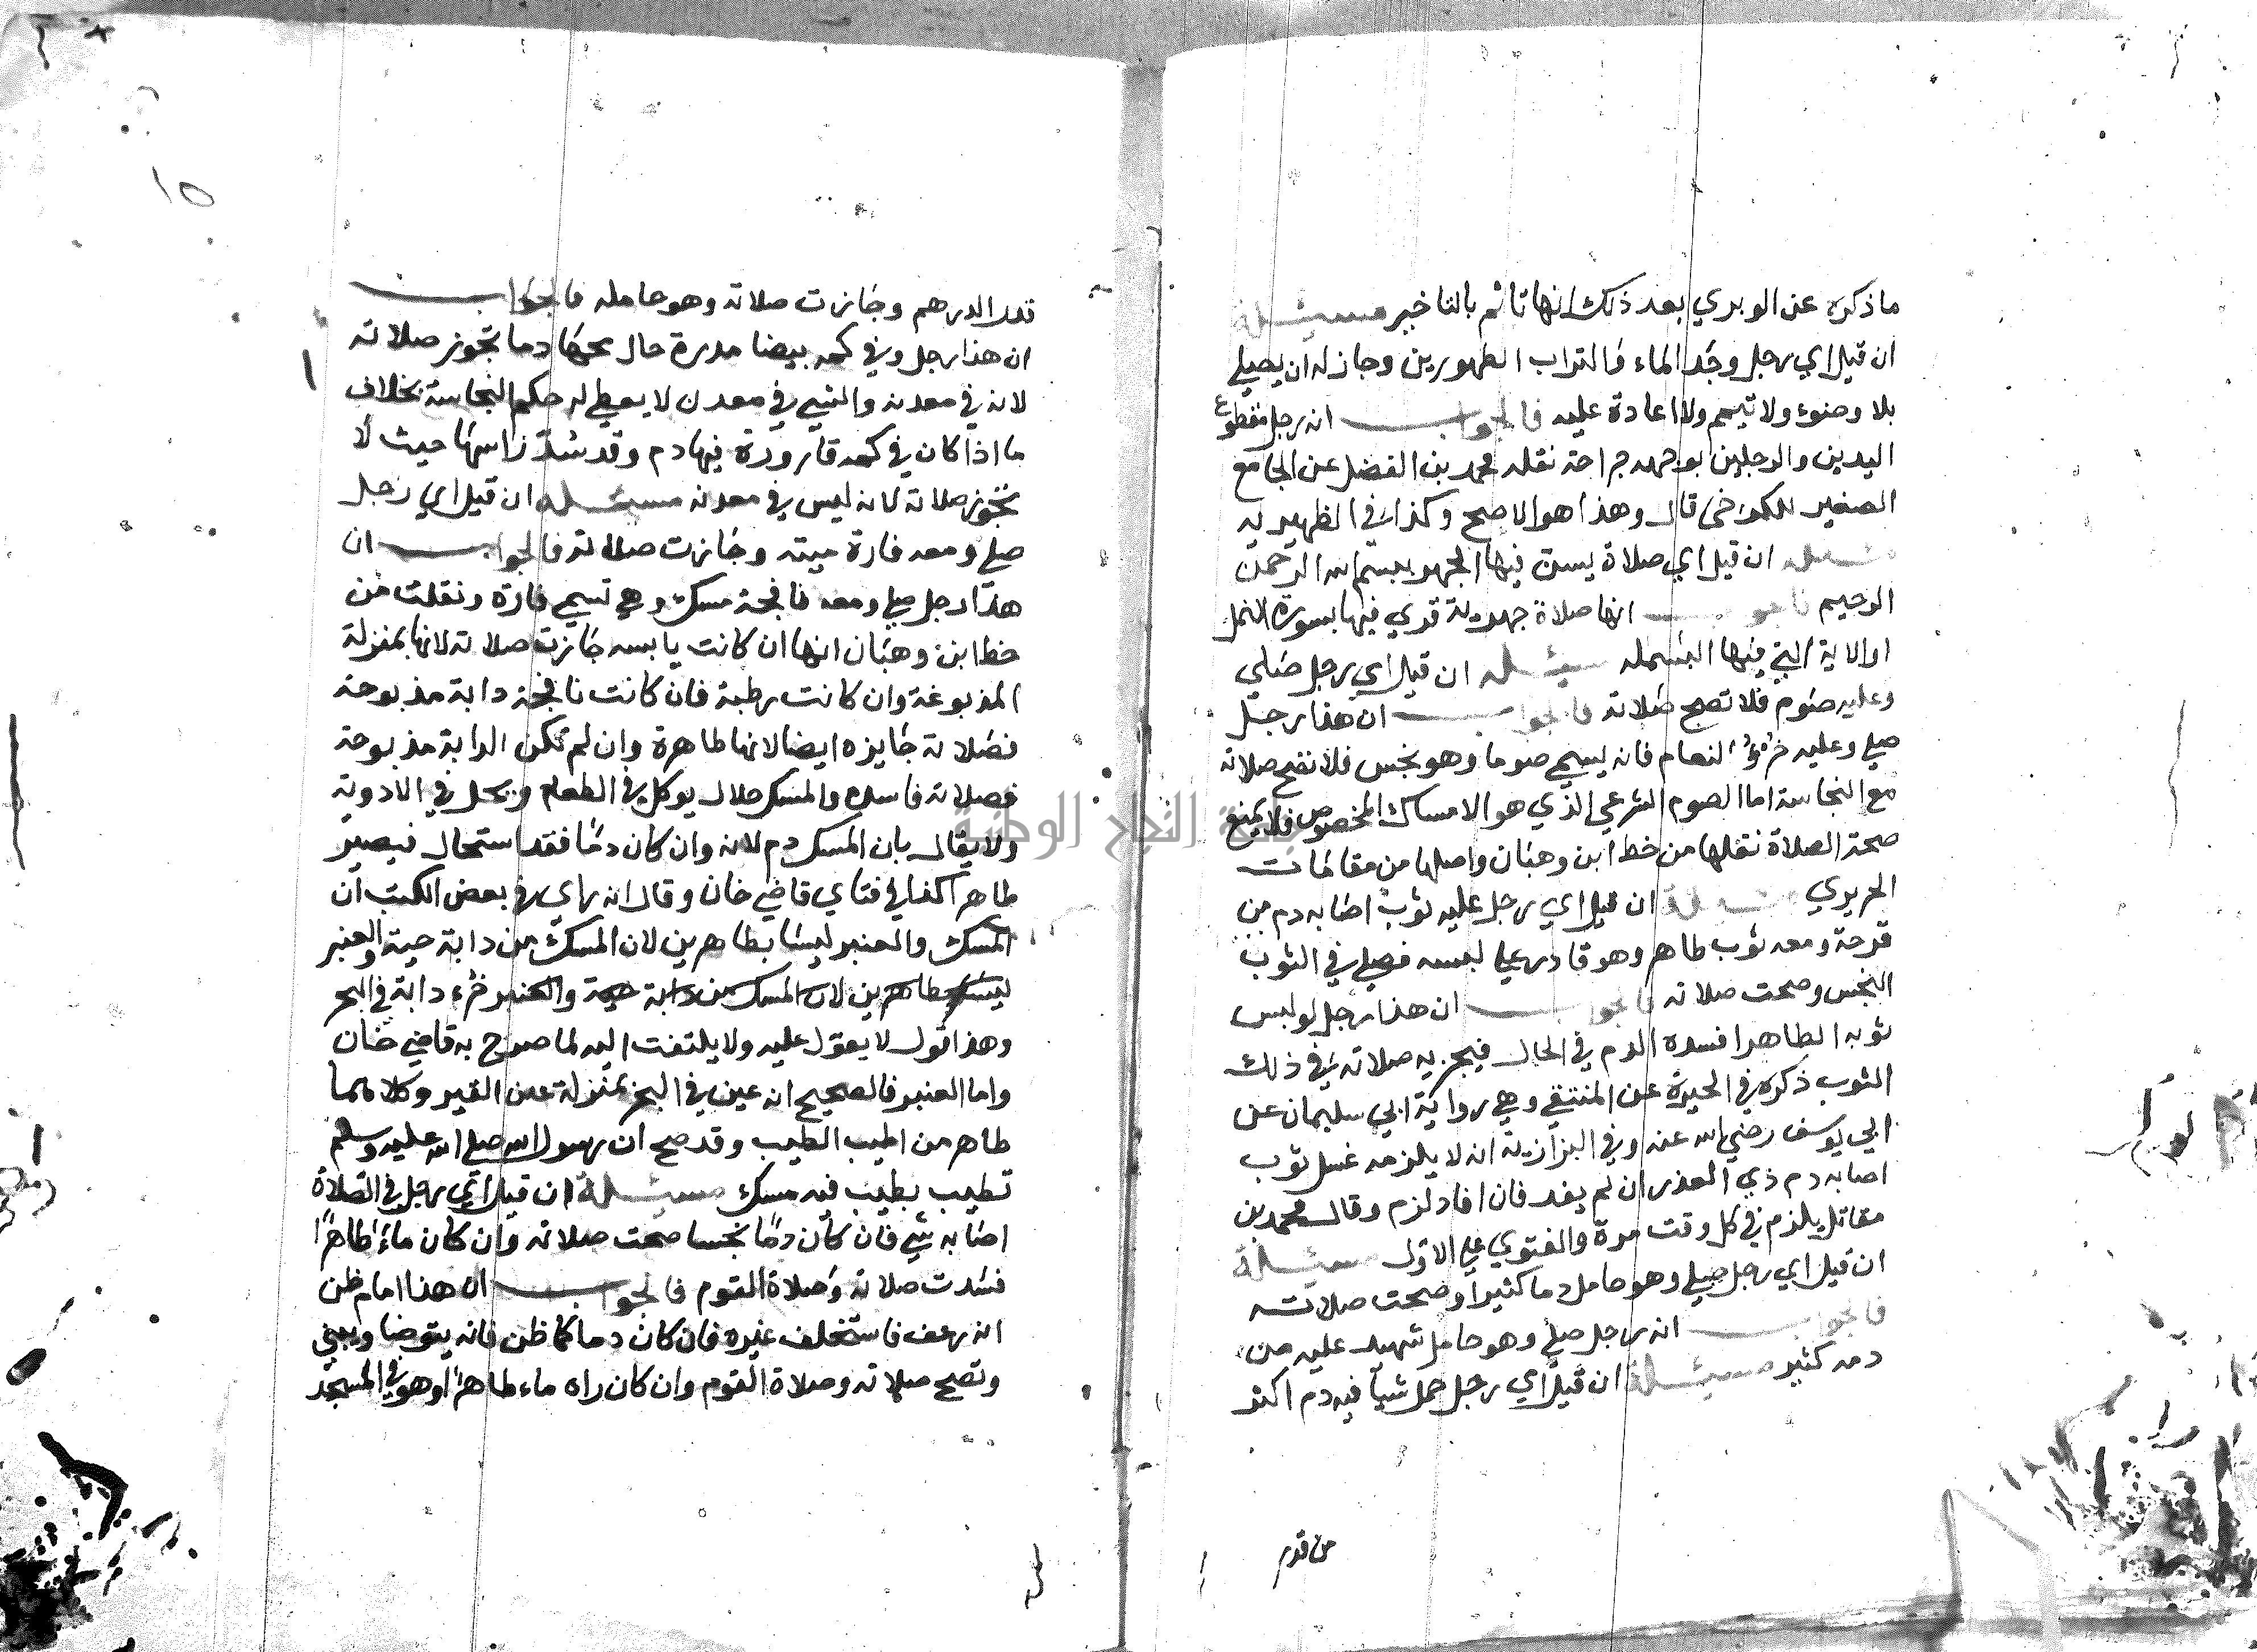 ما ذكره عن الوبري بعد ذلك انها تاثم بالتاخير مسئلة
ان قيل اي رجل وجد الماء والتراب الطهورين وجاز له ان يصلي
بلا وضوء ولا تيمم ولا اعادة عليه فالجواب انه رجل مقطوع
اليدين والرجلين بوجهه جراحة نقله محمد بن الفضل عن الجامع
الصغير للكرخي قال وهذا هو الاصح وكذا في الظهيرية
مسئله ان قيل اي صلاة يسن فيها الجهر ببسم الله الرحمن
الرحيم فالجواب انها صلاة جهرية قري فيها بسورة النمل
او الاية التي فيها البسمله مسئله ان قيل اي رجل صلي
وعليه صوم فلا تصح صلاته فالجواب ان هذا رجل
صلي وعليه خرؤ النعام فانه يسمي صوما وهو نجس فلا تصح صلاته
مع النجاسة اما الصوم الشرعي الذي هو الامساك المخصوص فلا يمنع
صحة الصلاة نقلها من خط ابن وهبان واصلها من مقامات
الحريري مسئلة ان قيل اي رجل عليه ثوب اصابه دم من
قرحة ومعه ثوب طاهر وهو قادر علي لبسه فصلي في الثوب
النجس وصحت صلاته فالجواب ان هذا رجل لو لبس
ثوبه الطاهر افسده الدم في الحال فيجزيه صلاته في ذلك
الثوب ذكره في الحيرة عن المنتقي وهي رواية ابي سليمان عن
ابي يوسف رضي الله عنه وفي البزازية انه لا يلزمه غسل ثوب
اصابه دم ذي العذر ان لم يفد فان افاد لزم وقال محمد بن
مقاتل يلزم في كل وقت مرة والفتوي علي الاول مسئلة
ان قيل اي رجل صلي وهو حامل دما كثيرا وصحت صلاته
فالجواب انه رجل صلي وهو حامل شهيد عليه من
دمه كثير مسئلة ان قيل اي رجل حمل شيا فيه دم اكثر
من قدر
١٥
قدر الدرهم وجازت صلاته وهو حامله فالجواب
ان هذا رجل وفي كمه بيضا مدرة حال محها دما تجوز صلاته
لانه في معدنه والشي في معدن لا يعطي له حكم النجاسة بخلاف
ما اذا كان في كمه قارورة فيها دم وقد شد راسها حيث لا
تجوز صلاته لانه ليس في معدنه مسئله ان قيل اي رجل
صلي ومعه فارة ميته وجازت صلاته فالجواب ان
هذا رجل صلي ومعه نافجة مسك وهي تسمي فارة ونقلت من
خط ابن وهبان انها ان كانت يابسه جازت صلاته لانها بمنزلة
المذبوغة وان كانت رطبة فان كانت نافجة دابة مذبوحة
فصلاته جايزه ايضا لانها طاهرة وان لم تكن الدابة مذبوحة
فصلاته فاسده والمسك حلال يوكل في الطعام ويجعل في الادوية
ولا يقال بان المسك دم لانه وان كان دما فقد استحال فيصير
طاهرا كذا في فتاي قاضي خان وقال انه راي في بعض الكتب ان
المسك والعنبر ليسا بطاهرين لان المسك من دابة حية والعنبر
ليسا بطاهرين لان المسك من دابة حية والعنبر خرء دابة في البحر
وهذا قول لا يعول عليه ولا يلتفت اليه لما صرح به قاضي خان
واما العنبر فالصحيح انه عين في البحر بمنزلة عين القير وكلاهما
طاهر من اطيب الطيب وقد صح ان رسول الله صلي الله عليه وسلم
تطيب بطيب فيه مسك مسئلة ان قيل اي رجل في الصلاة
اصابه شي فان كان دما نجسا صحت صلاته وان كان ماء طاهرا
فسدت صلاته وصلاة القوم فالجواب ان هذا امام ظن
انه رعف فاستخلف غيره فان كان دما كما ظن فانه يتوضا ويبني
وتصح صلاته وصلاة القوم وان كان راه ماء طاهرا وهو في المسجد
جامعة النجاح الوطنية